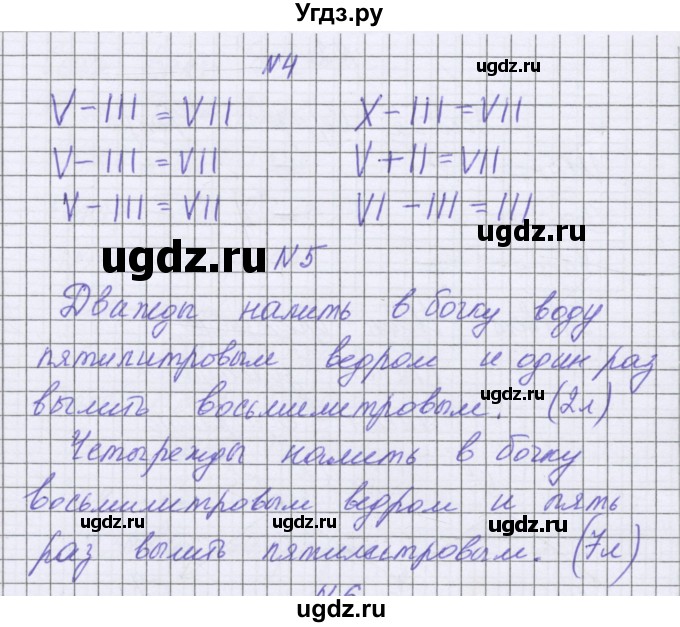 Угдз.ру
№4
ugdz.ru
V – III = VII X – III = VII
V – III = VII V + II = VII
V – III = VII VI – III = III
ugdz.ru
ugdz.ru
№5
Дважды налить в бочку воду
пятилитровым ведром и один раз
ugdz.ru
вылить восьмилитровым. (2л)
Четырежды налить в бочку
восьмилитровым ведром и пять
ugdz.ru ugdz.ru ugdz.ru
раз вылить пятилитровым. (7л)
№6
ugdz.ru